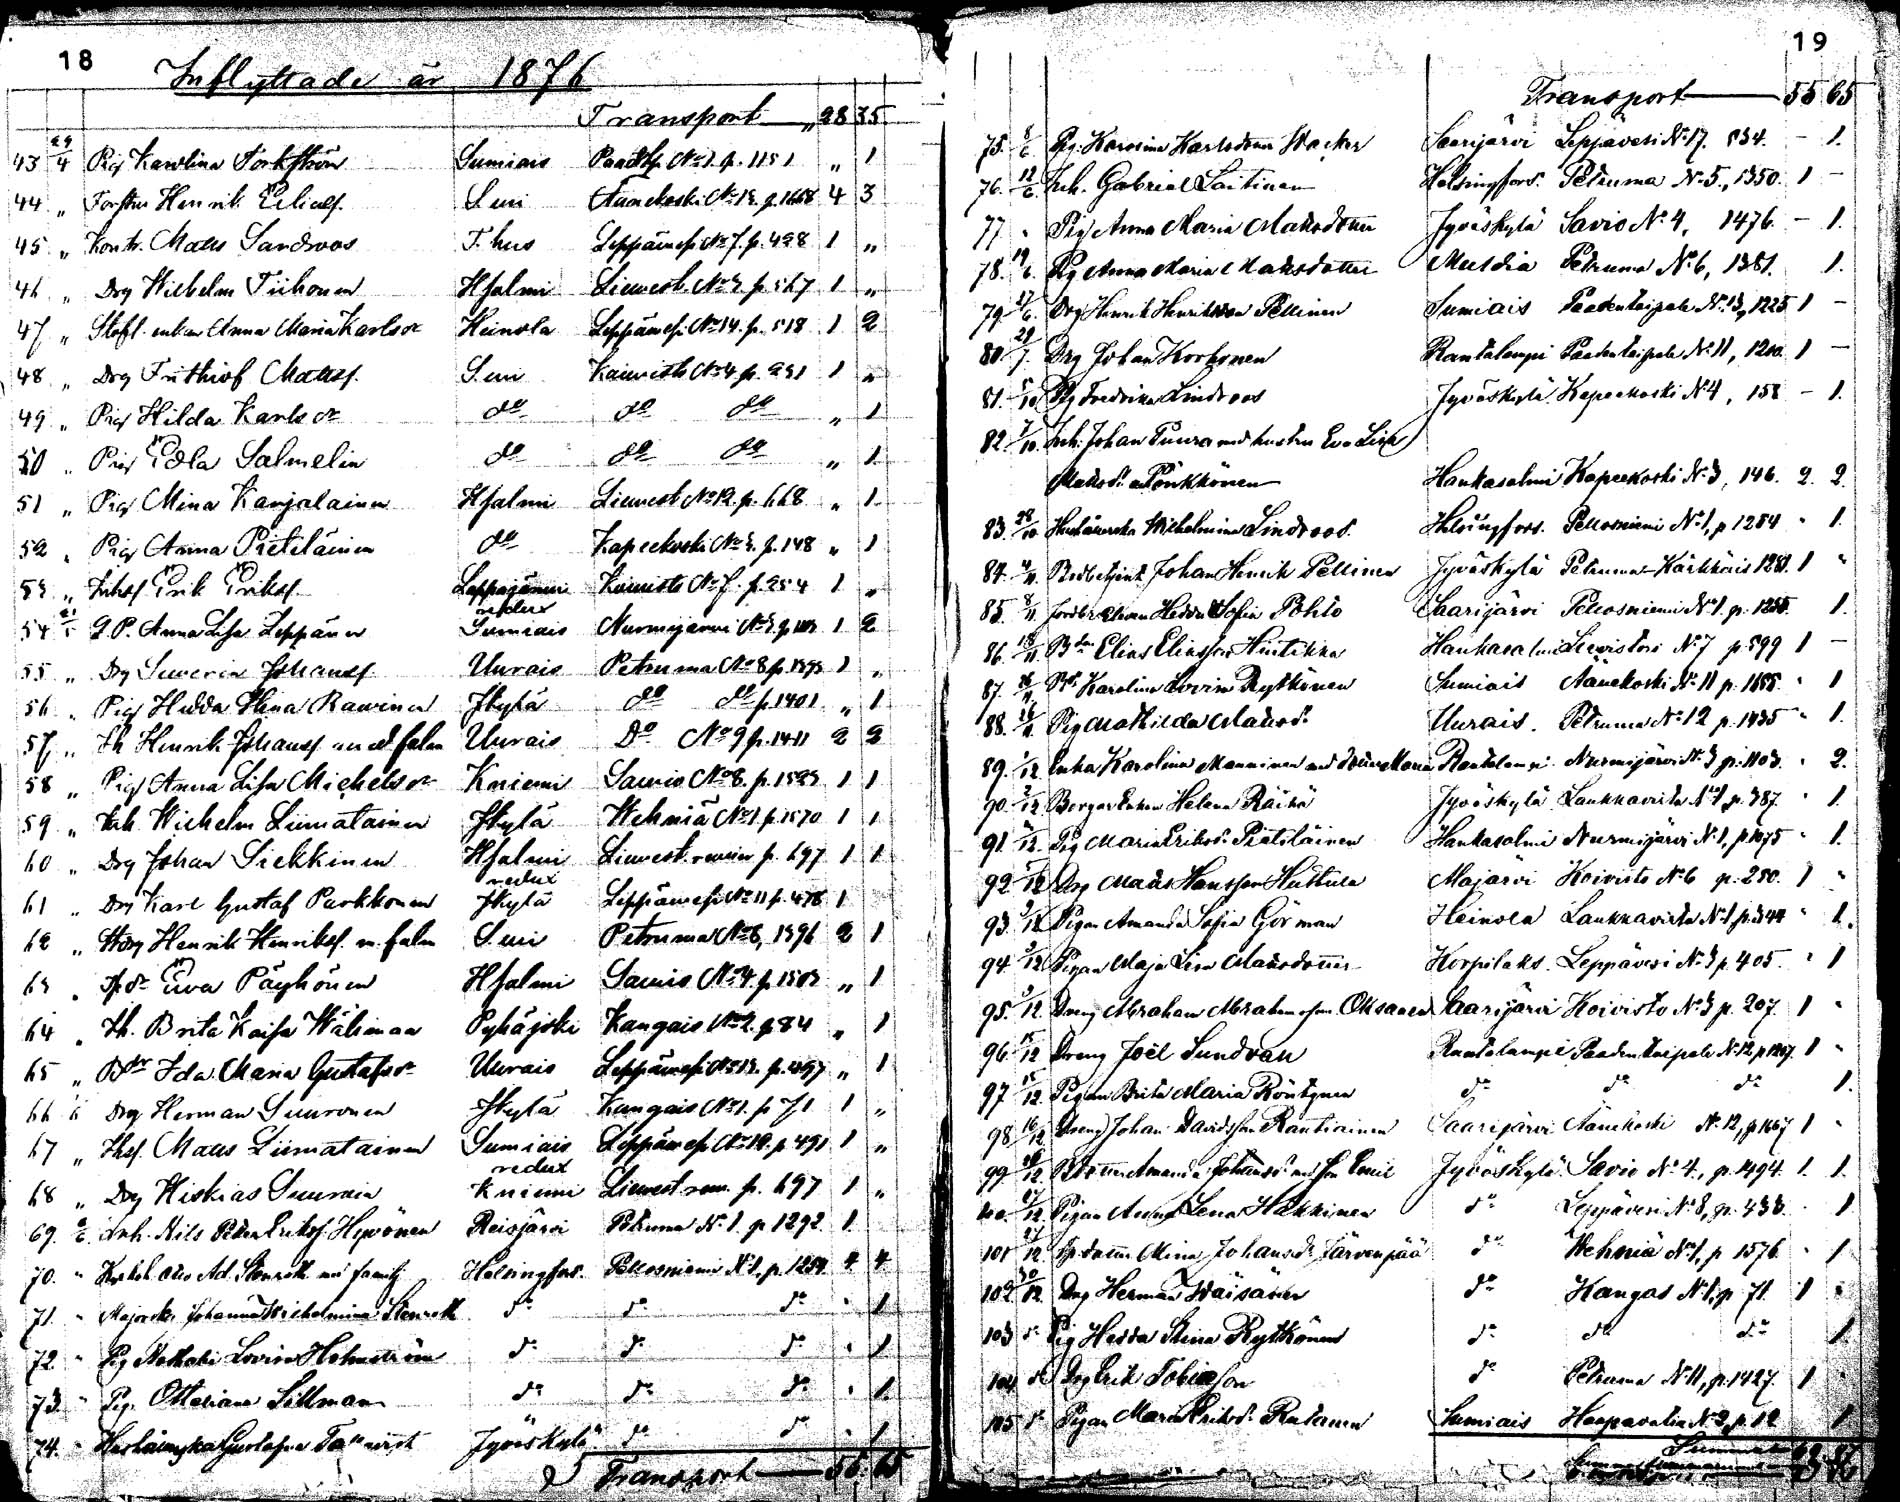 18
Inflyttade år 1876
Transport „ 28 35
43 29/4 Pig Karolina Torkskön Sumiais Paadtp. No 1. p. 1151 „ 1
44 „ Henrik Eliass. S:uri No 13. p. 1668 4 3
45 „ Kontr. Matts Sandroos T. hus Leppävesi No 7. p. 498 1 „
46 „ Drg Wilhelm Tiihonen Hsalmi Lievest. No 3 p. 567 1 „
47 „ enkan Anna Maria Karlsdr Heinola Leppävesi No 14. p. 518 1 2
48 „ Drg Frithiof Matss. S:uri Koivisto No 4. p. 231 1 „
49 „ Pig Hilda Karlsdr do do do „ 1
50 „ Pig Edla Salmelin do do do „ 1
51 „ Pig Mina Karjalainen Hsalmi Lievest No 12. p. 668 „ 1
52 „ Pig Anna Pietiläinen do Kapeekoski No 3. p. 148 „ 1
53 „ Inhs Erik Eriks. Koivisto No 7. p. 254 1 „
redux
54 21/5 Anna Lisa Leppänen Sumiais Nurmijärvi No 3. p. 1103 1 2
55 „ Drg Severin Johanss. Uurais Petruma No 8 p. 1393 1 „
56 „ Pig Hedda Stina Rawinen Jkylä do do p. 1401 „ 1
57 „ Ih Henrik Johanss. med falm Uurais Do No 9 p. 1411 2 2
58 „ Pig Anna Lisa Michelsdr Kniemi Savio No 8. p. 1523 1 1
59 „ Inh. Wilhelm Liimatainen Jkylä Wehniä No 1. p. 1570 1 1
60 „ Drg Johan Siekkinen Hsalmi Lievest. p. 697 1 1
redux
61 „ Drg Karl Gustaf Parkkonen Jkylä Leppävesi No 11 p. 478 1
62 „ Henrik Henrikss. m. falm S:uri Petruma No 6, 1396 2 1
63 „ Ewa Päyhönen Hsalmi Savio No 4. p. 1503 „ 1
64 „ Ih. Brita Kaisa Wähimaa Pyhäjoki Kangais No 2. p 84 „ 1
65 „ Bdr Ida Maria Gustafsdr Uurais Leppävesi No 13. p. 497 „ 1
66 Drg Herman Suuronen Jkylä Kangais No 1. p 71 1 „
67 „ Ihs. Matts Liimatainen Sumiais Leppävesi No 10. p. 491 1 „
redux
68 „ Drg Hiskias Kniemi Lievest p. 697 1 „
69. Inh. Nils Petter Erikss. Hyvönen Reisjärvi Petruma No. 1. p 1292 1
70. " Otto Ad. Stenroth med familj Helsingfors. Pellosniemi No 1, p. 1254 4 4
71. " Johanna Wilhelmina Stenroth do do do " 1
72 " Pig Nathalia Lovisa Holmström do do do " 1
73. " Pig. Ottiliana Sillman do do do " 1.
74. " Gustafva Jyväskylä do do " 1
Transport 55 65
19
Transport 55 65
75. 8/6 Pig. Karolina Karlsdotter Wacker Saarijärvi Leppävesi No 17. 534. – 1.
76. 12/6 Inh. Gabriel Laitinen Helsingfors. Petruma No. 5., 1350. 1 –
77 " Pig Anna Maria Matsdotter Jyväskylä Savio No 4, 1476. – 1.
78. 19/6 Pig Anna Maria Matsdotter Multia Petruma No. 6, 1381. 1.
79. 27/6. Drg Henrik Henriksson Pellinen Sumiais Paadentaipale No. 13, 1225 1 –
80. 29/7. Drg Johan Korhonen Rautalampi Paadentaipale No 11, 1210. 1 –
81. 5/10 Pig Fredrika Lindroos Jyväskylä Kapeekoski No 4, 158 – 1.
82. 7/10. Inh. Johan Puura med hustru Eva Lisa
Matsdr Pönkkönen Hankasalmi Kapeekoski No. 3, 146. 2. 2.
83. 28/10 Hushållerska Wilhelmina Lindroos. Helsingfors. Pellosniemi No. 1, p 1254 " 1.
84. 4/11. Johan Henrik Pellinen Jyväskylä Petruma – 1281. 1 "
85. 8/11 Hedda Sofia Pohto Saarijärvi Pellosniemi No 1. p. 1255. 1.
86. 18/11 Bdn Elias Eliasson Hintikka Hankasalmi Lievistori No 7 p. 599 1 –
87. Karolina Lovisa Rytkönen Sumiais Äänekoski No. 11 p. 1655. " 1
88. Pig Mathilda Matsdr. Uurais. Petruma No. 12 p. 1435 " 1.
89. 1/12 Enka Karolina Manninen med dotter Maria Rautalampi Nurmijärvi No. 3 p. 1103. " 2.
90. 2/12 Helena Räihä Jyväskylä Laukkavirta No 1, p. 387. " 1.
91. /12. Pig Maria Eriksdr. Pietiläinen Hankasalmi Nurmijärvi No. 1, p. 1075 " 1.
92. /12 Drg Matts Hansson Huttula Majärvi Koivisto No 6 p. 250. 1 "
93. 9/12 Pigan Amanda Sofia Görman Heinola Laukkavirta No. 1 p. 344 " 1.
94. 9/12 Pigan Maja Lisa Matsdotter Korpilaks. Leppävesi No. 3 p. 405. " 1
95. 9/12. Dreng Abraham Abrahamsson Oksanen Saarijärvi Koivisto No. 3 p. 207. 1 "
96. 15/12 Dreng Joel Sundvall Rautalampi Paadentaipale No. 12, p 1217. 1 "
97 15/12. Pigan Brita Maria Röntynen do do do 1.
98 16/12 Dreng Johan Davidsson Rautiainen Saarijärvi Äänekoski No. 12, p. 1667 1 "
99. /12 Amanda Johansdr med son Emil Jyväskylä. Savio No. 4., p. 1494. 1. 1.
100. 27/12. Pigan Anna Lena Häkkinen do Leppävesi No 8, p. 433. " 1
101 27/12. Mina Johansdr Järvenpää do Wehniä No 1, p 1576. " 1
102. 30/12. Drg Herman Wäisänen do Kangas No 1, p 71. 1 "
103 do Pig Hedda Stina Rytkönen do do do 1.
104 do Drg Erik Tobiasson do Petruma No. 11, p. 1427. 1 "
105 do Pigan Maria Eriksdr Rutanen Sumiais Haapavatia No. 2, p. 12 1
Summa